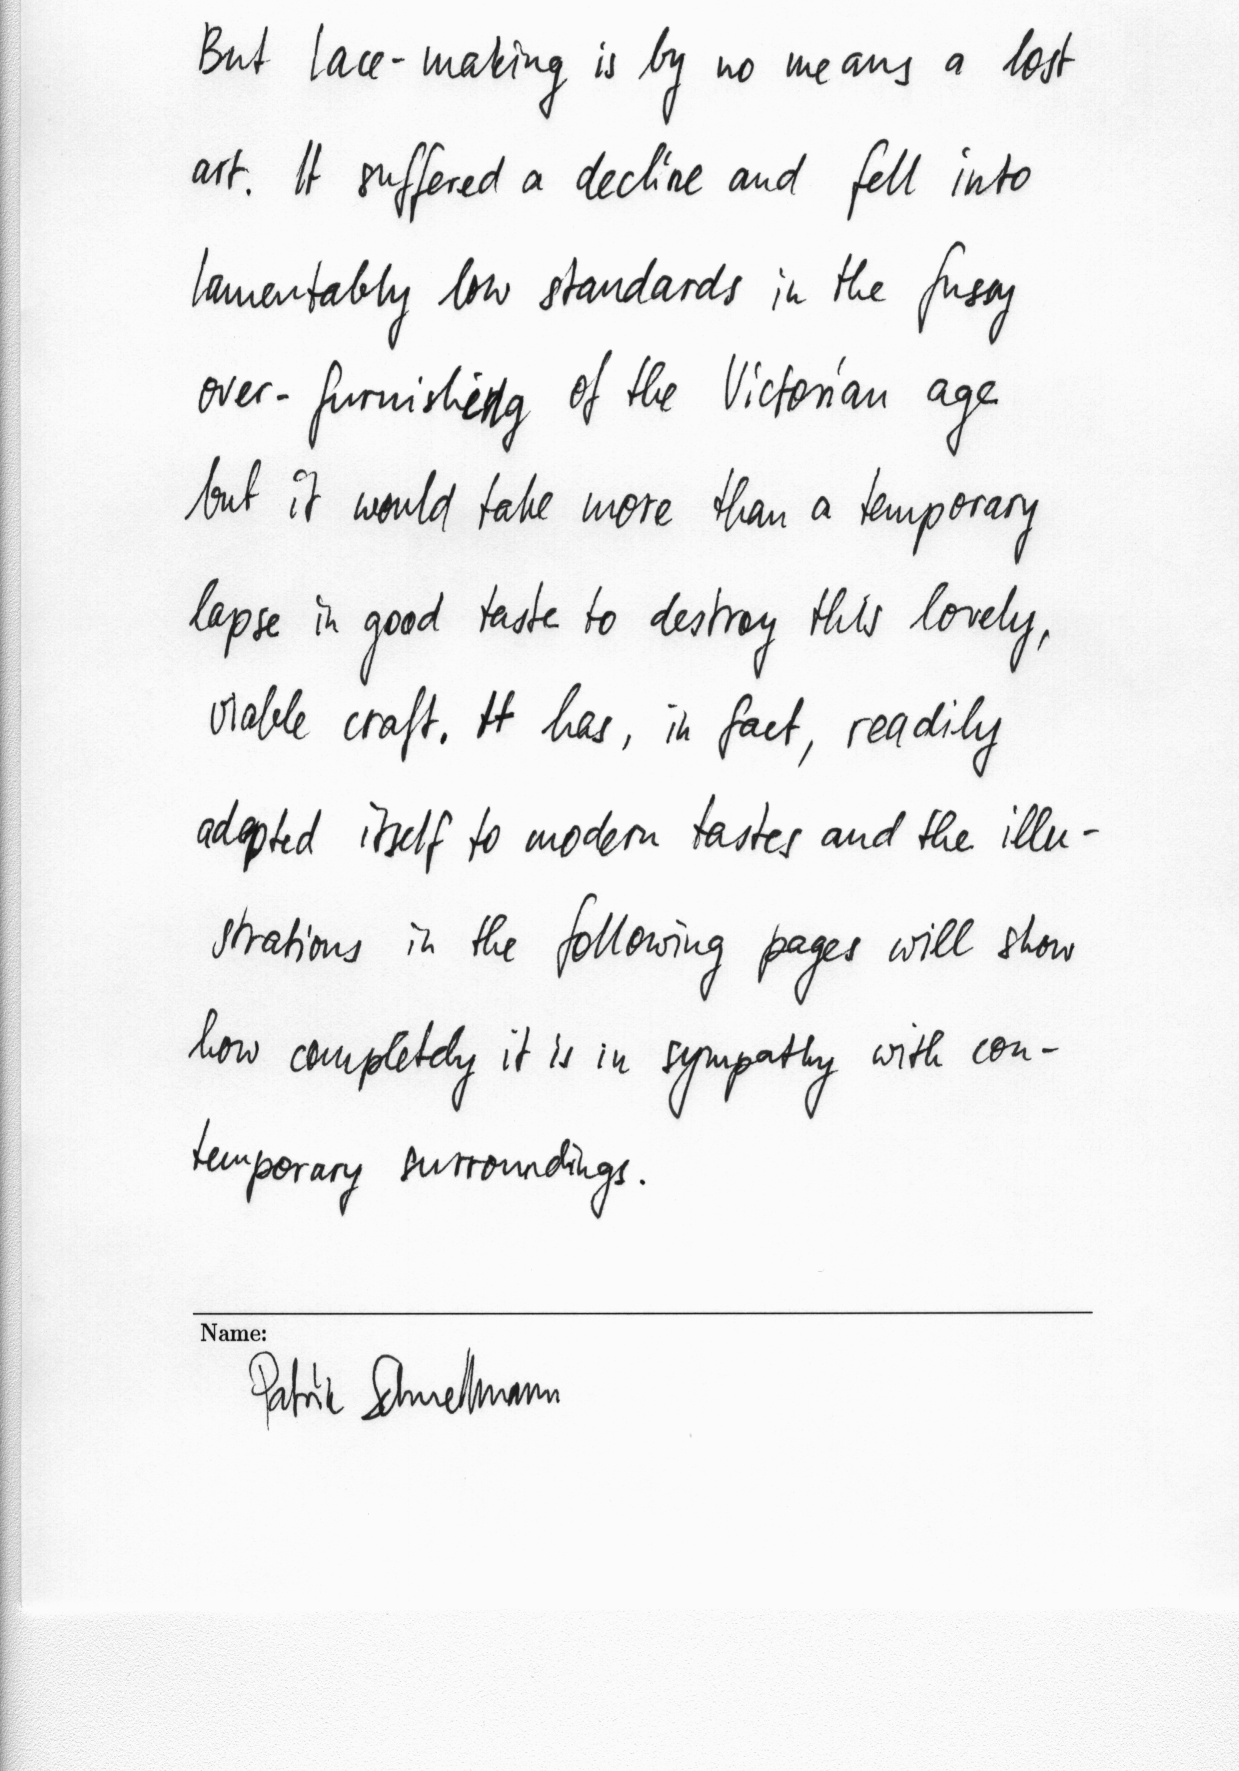 But lace-making is by no means a lost
art. It suffered a decline and fell into
lamentably low standards in the fussy
over-furnishing of the Victorian age
but it would take more than a temporary
lapse in good taste to destroy this lovely,
viable craft. It has, in fact, readily
adapted itself to modern tastes and the illu-
strations in the following pages will show
how completely it is in sympathy with con-
temporary surroundings.
Name:
Patrik Schnellmann